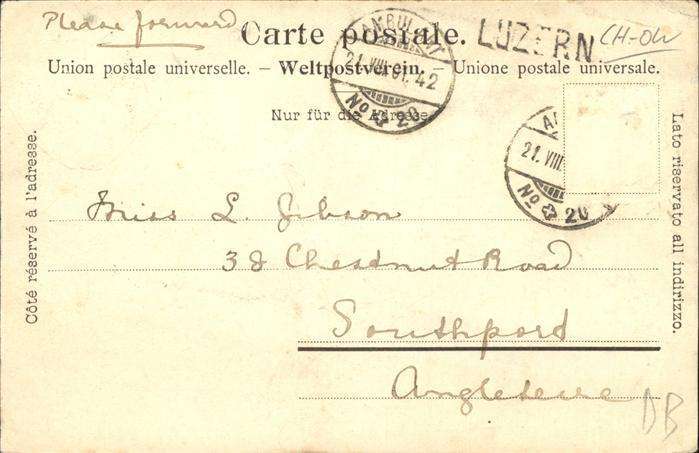 Please forward
Carte postale.
LUZERN
CH-OW
Union postale universelle. – Weltpostverein. – Unione postale universale.
21. VIII. 01. 42
No 20
Nur für die Adresse.
21. VIII.
No 20
Côté réservé à l'adresse.
Lato riservato all indirizzo.
Miss L. Gibson
38 Chestnut Road
Southport
Angleterre
DB